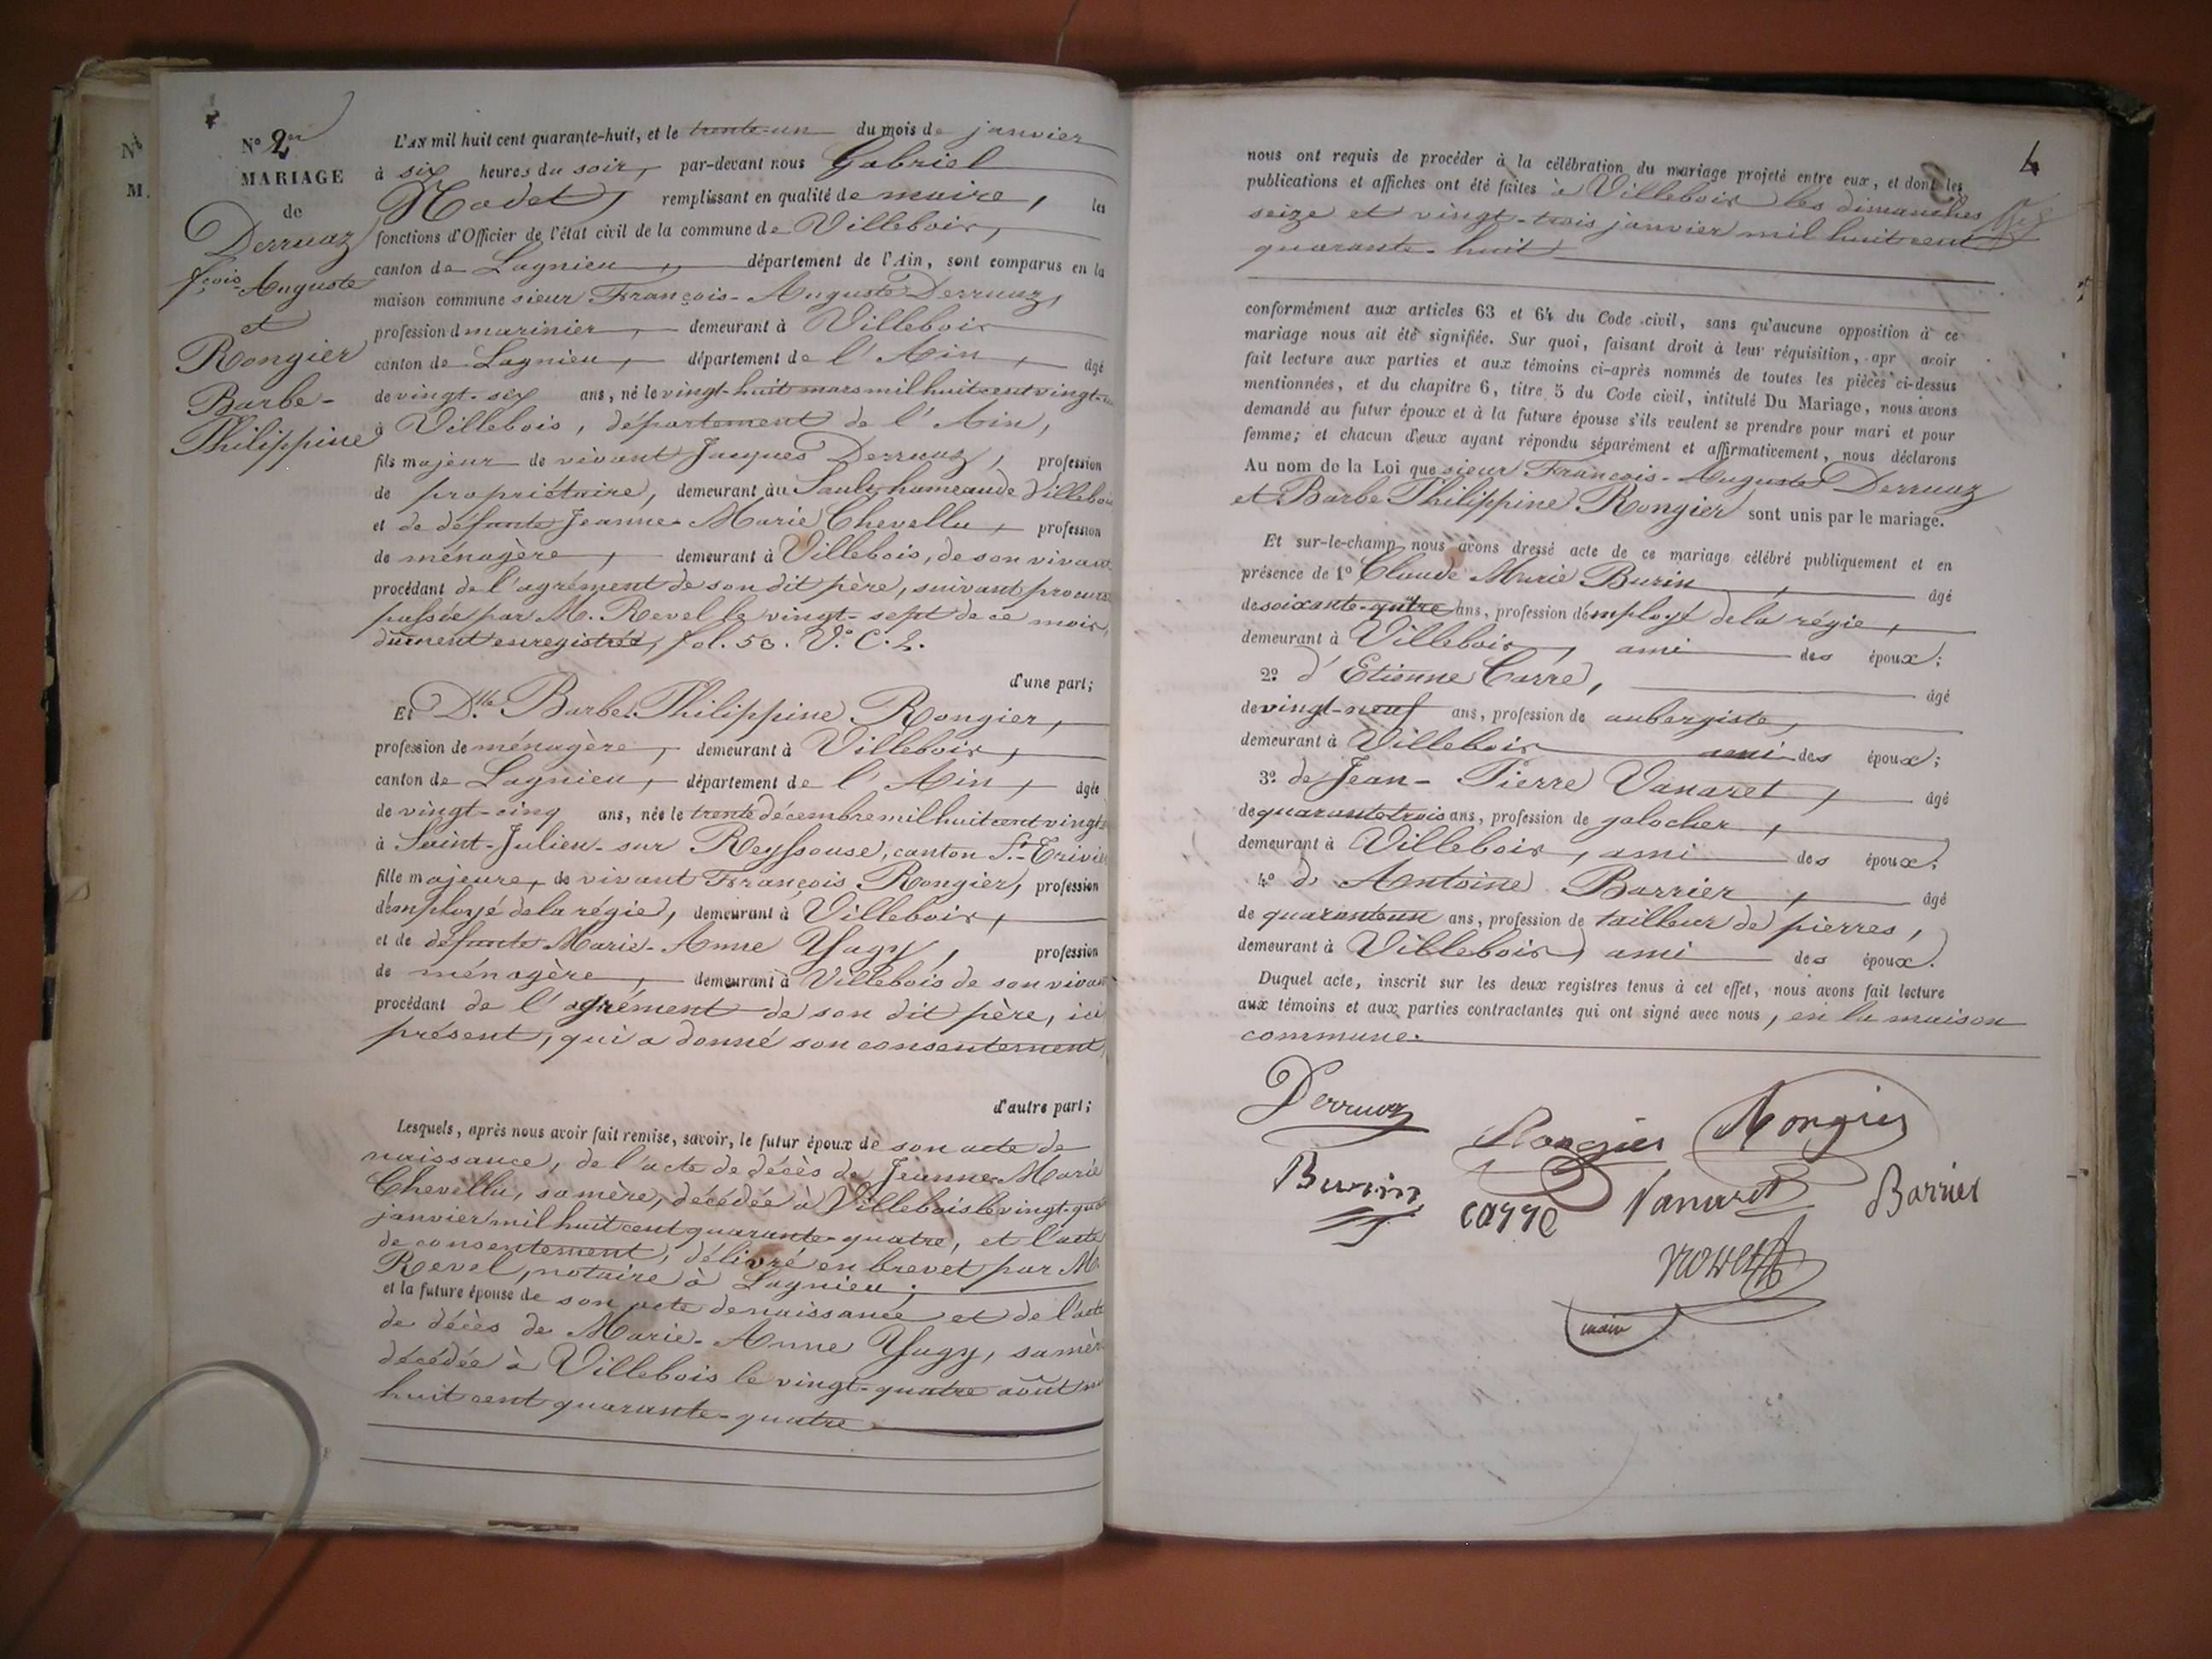 N° 2
MARIAGE
de
Derruaz
fçois-Auguste
et
Rongier
Barbe-
Philippine
L'AN mil huit cent quarante-huit, et le trente-un du mois de janvier
à six heures du soir, par-devant nous Gabriel
remplissant en qualité de maire, les
fonctions d'Officier de l'état civil de la commune de Villebois,
canton de Lagnieu, département de l'Ain, sont comparus en la
maison commune sieur François-Auguste Derruaz,
profession d marinier, demeurant à Villebois
canton de Lagnieu, département de l'Ain, âgé
de vingt-six ans, né le vingt-huit mars mil huit cent vingt-
à Villebois, département de l'Ain,
fils majeur de vivant Jacques Derruaz, profession
de propriétaire, demeurant au Sault, hameau de Villebois
et de défunte Jeanne-Marie Chevellu, profession
de ménagère, demeurant à Villebois, de son vivant
procédant de l'agrément de son dit père, suivant procura
passée par M. Revel le vingt-sept de ce mois,
dûment enregistrée, fol. 50. V.° C. 2.
d'une part;
Et Dlle Barbe Philippine Rongier,
profession de ménagère, demeurant à Villebois,
canton de Lagnieu, département de l'Ain, âgée
de vingt-cinq ans, née le trente décembre mil huit cent vingt
à Saint-Julien-sur Reyssouse, canton St-Trivier
fille majeure, de vivant François Rongier, profession
d'employé de la régie, demeurant à Villebois,
et de défunte Marie-Anne Yugy, profession
de ménagère, demeurant à Villebois de son vivant
procédant de l'agrément de son dit père, ici
présent, qui a donné son consentement,
d'autre part;
Lesquels, après nous avoir fait remise, savoir, le futur époux de son acte de
naissance, de l'acte de décès de Jeanne-Marie
Chevellu, sa mère, décédée à Villebois le vingt-qua
janvier mil huit cent quarante-quatre, et l'acte
de consentement, délivré en brevet par M.
Revel, notaire à Lagnieu;
et la future épouse de son acte de naissance et de l'acte
de décès de Marie-Anne Yugy, sa mère
décédée à Villebois le vingt-quatre août mil
huit cent quarante-quatre
4
nous ont requis de procéder à la célébration du mariage projeté entre eux, et dont les
publications et affiches ont été faites à Villebois les dimanches
seize et vingt-trois janvier mil huit cent
quarante-huit
conformément aux articles 63 et 64 du Code civil, sans qu'aucune opposition à ce
mariage nous ait été signifiée. Sur quoi, faisant droit à leur réquisition, apr avoir
fait lecture aux parties et aux témoins ci-après nommés de toutes les pièces ci-dessus
mentionnées, et du chapitre 6, titre 5 du Code civil, intitulé Du Mariage, nous avons
demandé au futur époux et à la future épouse s'ils veulent se prendre pour mari et pour
femme; et chacun d'eux ayant répondu séparément et affirmativement, nous déclarons
Au nom de la Loi que sieur François-Auguste Derruaz
et Barbe Philippine Rongier sont unis par le mariage.
Et sur-le-champ nous avons dressé acte de ce mariage célébré publiquement et en
présence de 1° Claude Marie Burin, âgé
de soixante-quatre ans, profession d'employé de la régie,
demeurant à Villebois, ami des époux;
2° d'Etienne Carre, âgé
de vingt-neuf ans, profession de aubergiste,
demeurant à Villebois ami des époux;
3° de Jean-Pierre Vanaret, âgé
de quarante trois ans, profession de galocher,
demeurant à Villebois, ami des époux;
4° d Antoine Barrier, âgé
de quarante un ans, profession de tailleur de pierres,
demeurant à Villebois ami des époux.
Duquel acte, inscrit sur les deux registres tenus à cet effet, nous avons fait lecture
aux témoins et aux parties contractantes qui ont signé avec nous, en la maison
commune.
Derruaz
Rongier Rongier
Burin Carre Vanaret Barrier
maire